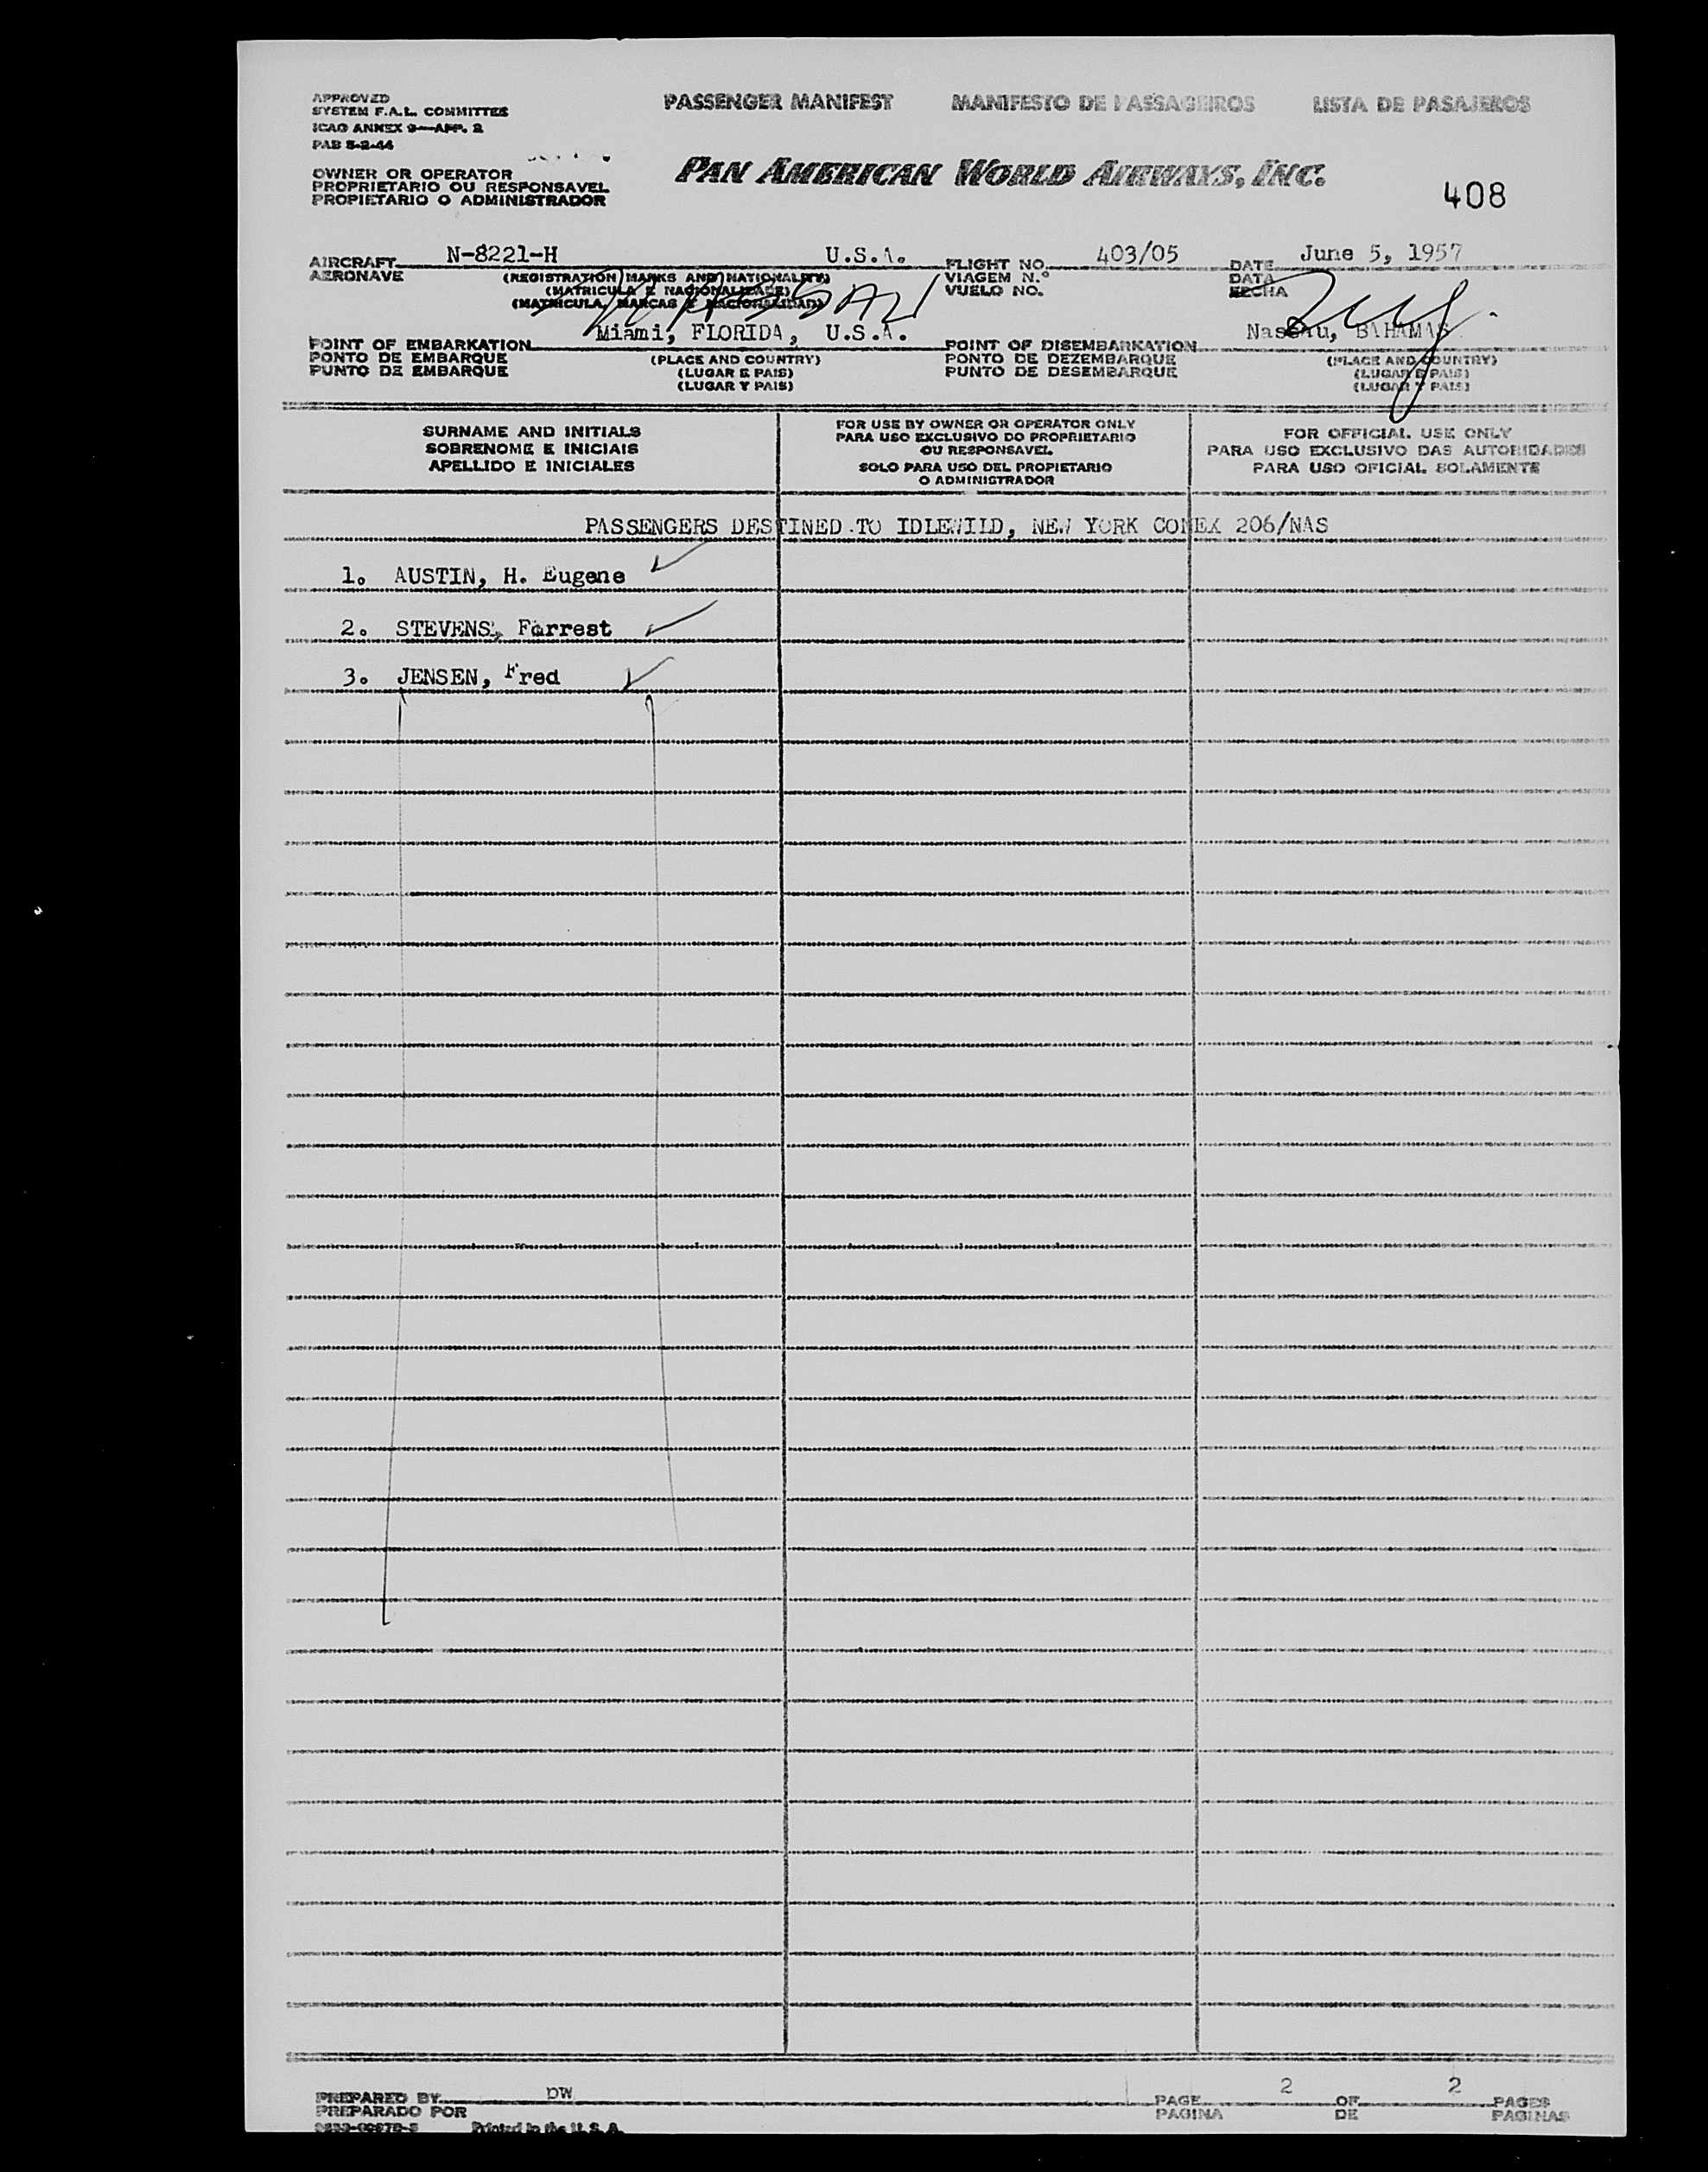 APPROVED
SYSTEM F.A.L. COMMITTEE
ICAO ANNEX 9—APP. 2
PAB 5-2-44
PASSENGER MANIFEST MANIFESTO DE PASSAGEIROS LISTA DE PASAJEROS
OWNER OR OPERATOR
PROPRIETARIO OU RESPONSAVEL
PROPIETARIO O ADMINISTRADOR
PAN AMERICAN WORLD AIRWAYS, INC.
408
AIRCRAFT N-8221-H U.S.A. FLIGHT NO. 403/05 DATE June 5, 1957
AERONAVE (REGISTRATION MARKS AND NATIONALITY) VIAGEM N.º DATA
(MATRICULA E NACIONALIDADE) VUELO NO. FECHA
(MATRICULA, MARCAS E NACIONALIDAD)
NASSAU
POINT OF EMBARKATION Miami, FLORIDA, U.S.A. POINT OF DISEMBARKATION Nassau, BAHAMAS
PONTO DE EMBARQUE (PLACE AND COUNTRY) PONTO DE DEZEMBARQUE (PLACE AND COUNTRY)
PUNTO DE EMBARQUE (LUGAR E PAIS) PUNTO DE DESEMBARQUE (LUGAR E PAIS)
(LUGAR Y PAIS) (LUGAR Y PAIS)
SURNAME AND INITIALS
SOBRENOME E INICIAIS
APELLIDO E INICIALES
FOR USE BY OWNER OR OPERATOR ONLY
PARA USO EXCLUSIVO DO PROPRIETARIO
OU RESPONSAVEL
SOLO PARA USO DEL PROPIETARIO
O ADMINISTRADOR
FOR OFFICIAL USE ONLY
PARA USO EXCLUSIVO DAS AUTORIDADES
PARA USO OFICIAL SOLAMENTE
PASSENGERS DESTINED TO IDLEWILD, NEW YORK CONEX 206/NAS
1. AUSTIN, H. Eugene
2. STEVENS, Forrest
3. JENSEN, Fred
PREPARED BY pw PAGE 2 OF 2 PAGES
PREPARADO POR PAGINA DE PAGINAS
Printed in the U.S.A.